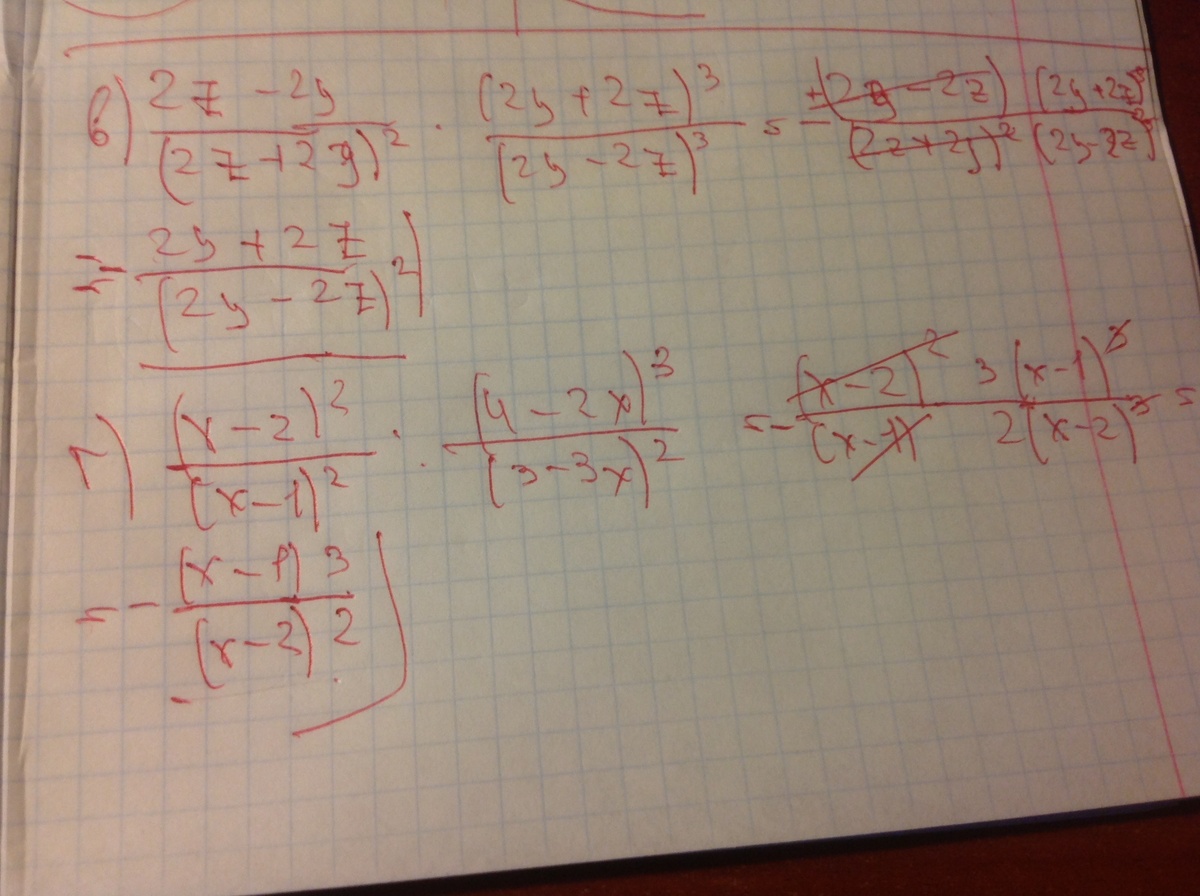 в) \frac{2z - 2y}{(2z + 2y)^2} \cdot \frac{(2y + 2z)^3}{(2y - 2z)^3} = - \frac{(2y - 2z) (2y + 2z)^3}{(2z + 2y)^2 (2y - 2z)^3}
= - \frac{2y + 2z}{(2y - 2z)^2}
г) \frac{(x - 2)^2}{(x - 1)^2} \cdot \frac{(4 - 2x)^3}{(3 - 3x)^2} = - \frac{(x - 2)^2 3(x - 1)^3}{(x - 1) 2(x - 2)^3} =
= - \frac{(x - 1) 3}{(x - 2) 2}